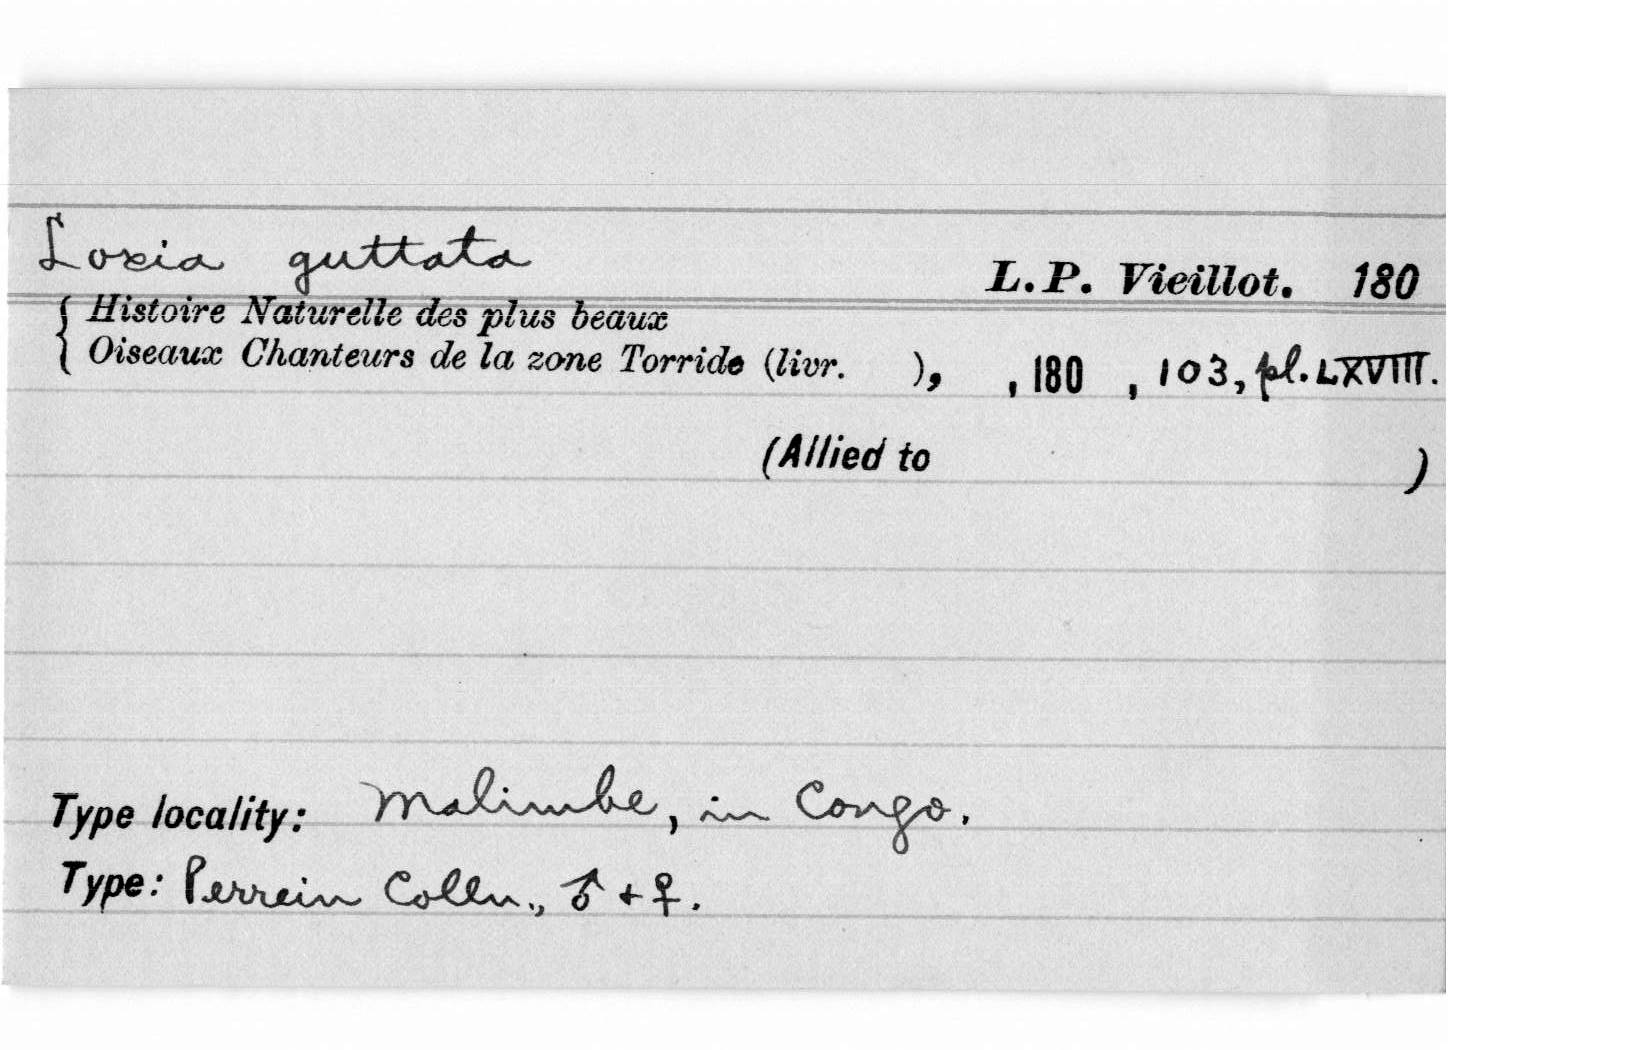 Loxia guttata
L. P. Vieillot. 180
Histoire Naturelle des plus beaux
Oiseaux Chanteurs de la zone Torride (livr. ), , 180 , 103, pl. LXVIIII.
(Allied to )
Type locality: Malimbe, in Congo.
Type: Perrein Colln., ♂ + ♀.